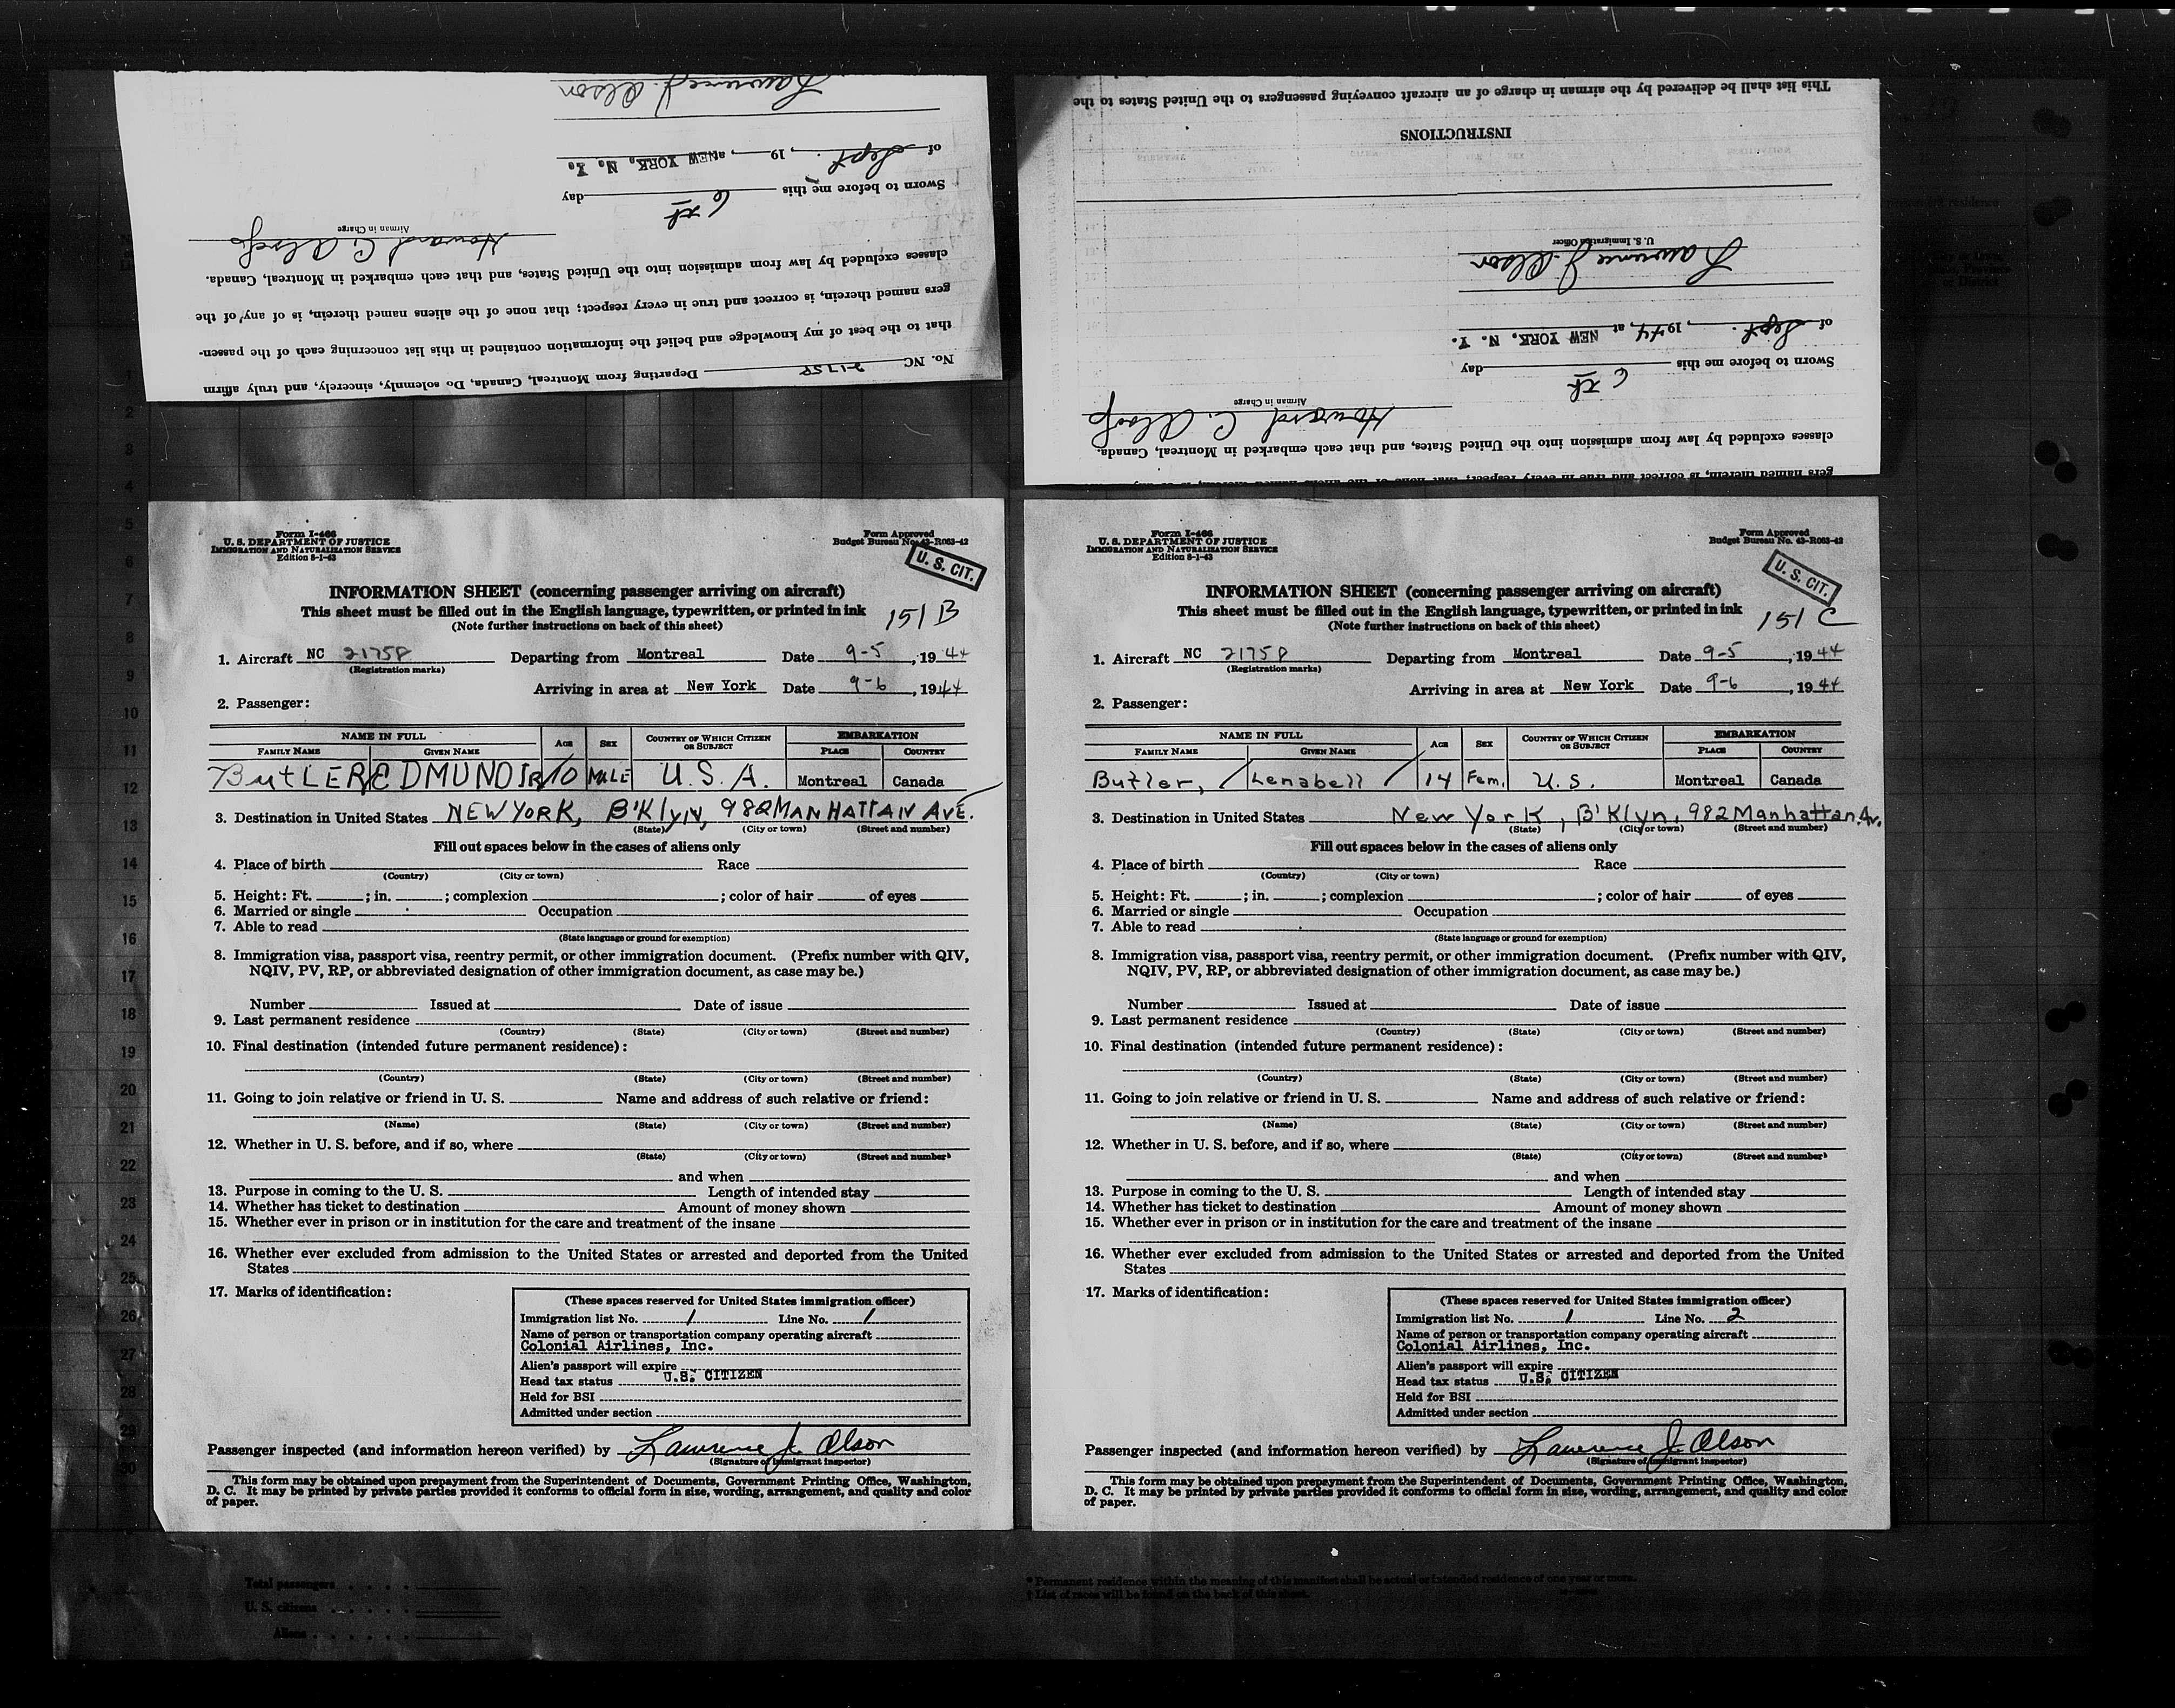 No. NC 21758 Departing from Montreal, Canada, Do solemnly, sincerely, and truly affirm
that to the best of my knowledge and belief the information contained in this list concerning each of the passen-
gers named therein, is correct and true in every respect; that none of the aliens named therein, is of any of the
classes excluded by law from admission into the United States, and that each embarked in Montreal, Canada.
Howard C. Alsop
Airman in Charge
Sworn to before me this 6th day
of Sept. , 19 , at NEW YORK, N. Y.
Lawrence J. Olson
gers named therein, is correct and true in every respect; that none of the aliens named therein, is of any
classes excluded by law from admission into the United States, and that each embarked in Montreal, Canada.
Howard C. Alsop
Airman in Charge
Sworn to before me this 6th day
of Sept. , 1944, at NEW YORK, N. Y.
Lawrence J. Olson
U. S. Immigration Officer
INSTRUCTIONS
This list shall be delivered by the airman in charge of an aircraft conveying passengers to the United States to the
Form I-466
U. S. DEPARTMENT OF JUSTICE
IMMIGRATION AND NATURALIZATION SERVICE
Edition 8-1-43
Form Approved
Budget Bureau No. 43-R063-42
U. S. CIT.
INFORMATION SHEET (concerning passenger arriving on aircraft)
This sheet must be filled out in the English language, typewritten, or printed in ink
(Note further instructions on back of this sheet)
151 B
1. Aircraft NC 21758 Departing from Montreal Date 9-5, 1944
(Registration marks)
Arriving in area at New York Date 9-6, 1944
2. Passenger:
NAME IN FULL AGE SEX COUNTRY OF WHICH CITIZEN OR SUBJECT EMBARKATION
FAMILY NAME GIVEN NAME PLACE COUNTRY
ButLER EDMUND JR 10 MALE U.S.A. Montreal Canada
3. Destination in United States NEW YORK, B'Klyn, 982 MANHATTAN AVE.
(State) (City or town) (Street and number)
Fill out spaces below in the cases of aliens only
4. Place of birth Race
(Country) (City or town)
5. Height: Ft. ; in. ; complexion ; color of hair of eyes
6. Married or single Occupation
7. Able to read
(State language or ground for exemption)
8. Immigration visa, passport visa, reentry permit, or other immigration document. (Prefix number with QIV,
NQIV, PV, RP, or abbreviated designation of other immigration document, as case may be.)
Number Issued at Date of issue
9. Last permanent residence
(Country) (State) (City or town) (Street and number)
10. Final destination (intended future permanent residence):
(Country) (State) (City or town) (Street and number)
11. Going to join relative or friend in U. S. Name and address of such relative or friend:
(Name) (State) (City or town) (Street and number)
12. Whether in U. S. before, and if so, where
(State) (City or town) (Street and number)
and when
13. Purpose in coming to the U. S. Length of intended stay
14. Whether has ticket to destination Amount of money shown
15. Whether ever in prison or in institution for the care and treatment of the insane
16. Whether ever excluded from admission to the United States or arrested and deported from the United
States
17. Marks of identification:
(These spaces reserved for United States immigration officer)
Immigration list No. 1 Line No. 1
Name of person or transportation company operating aircraft
Colonial Airlines, Inc.
Alien's passport will expire
Head tax status U.S. CITIZEN
Held for BSI
Admitted under section
Passenger inspected (and information hereon verified) by Lawrence J. Olson
(Signature of immigrant inspector)
This form may be obtained upon prepayment from the Superintendent of Documents, Government Printing Office, Washington,
D. C. It may be printed by private parties provided it conforms to official form in size, wording, arrangement, and quality and color
of paper.
Form I-466
U. S. DEPARTMENT OF JUSTICE
IMMIGRATION AND NATURALIZATION SERVICE
Edition 8-1-43
Form Approved
Budget Bureau No. 43-R063-42
U. S. CIT.
INFORMATION SHEET (concerning passenger arriving on aircraft)
This sheet must be filled out in the English language, typewritten, or printed in ink
(Note further instructions on back of this sheet)
151 C
1. Aircraft NC 21758 Departing from Montreal Date 9-5, 1944
(Registration marks)
Arriving in area at New York Date 9-6, 1944
2. Passenger:
NAME IN FULL AGE SEX COUNTRY OF WHICH CITIZEN OR SUBJECT EMBARKATION
FAMILY NAME GIVEN NAME PLACE COUNTRY
Butler, Lenabell 14 Fem. U.S. Montreal Canada
3. Destination in United States New York, B'Klyn, 982 Manhattan Av.
(State) (City or town) (Street and number)
Fill out spaces below in the cases of aliens only
4. Place of birth Race
(Country) (City or town)
5. Height: Ft. ; in. ; complexion ; color of hair of eyes
6. Married or single Occupation
7. Able to read
(State language or ground for exemption)
8. Immigration visa, passport visa, reentry permit, or other immigration document. (Prefix number with QIV,
NQIV, PV, RP, or abbreviated designation of other immigration document, as case may be.)
Number Issued at Date of issue
9. Last permanent residence
(Country) (State) (City or town) (Street and number)
10. Final destination (intended future permanent residence):
(Country) (State) (City or town) (Street and number)
11. Going to join relative or friend in U. S. Name and address of such relative or friend:
(Name) (State) (City or town) (Street and number)
12. Whether in U. S. before, and if so, where
(State) (City or town) (Street and number)
and when
13. Purpose in coming to the U. S. Length of intended stay
14. Whether has ticket to destination Amount of money shown
15. Whether ever in prison or in institution for the care and treatment of the insane
16. Whether ever excluded from admission to the United States or arrested and deported from the United
States
17. Marks of identification:
(These spaces reserved for United States immigration officer)
Immigration list No. 1 Line No. 2
Name of person or transportation company operating aircraft
Colonial Airlines, Inc.
Alien's passport will expire
Head tax status U.S. CITIZEN
Held for BSI
Admitted under section
Passenger inspected (and information hereon verified) by Lawrence J. Olson
(Signature of immigrant inspector)
This form may be obtained upon prepayment from the Superintendent of Documents, Government Printing Office, Washington,
D. C. It may be printed by private parties provided it conforms to official form in size, wording, arrangement, and quality and color
of paper.
Total passengers
U. S. citizens
Aliens
* Permanent residence within the meaning of this manifest shall be actual or intended residence of one year or more.
† List of races will be found on the back of this sheet.